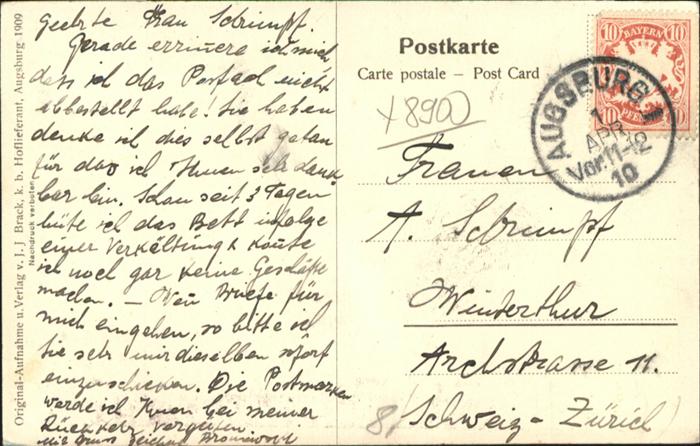 Geehrte Frau Schrimpf.
Gerade errinere ich mich
dass ich das Postfach nicht
abbestellt habe! Sie haben
denke ich dies selbst getan
für das ich Ihnen sehr dank-
bar bin. Schon seit 3 Tagen
hüte ich das Bett infolge
einer Verkältung & konte
ich noch gar keine Geschäfte
machen. – Wen Briefe für
mich eingehen, so bitte ich
Sie sehr mir dieselben sofort
einzuschicken. Die Postmarken
werde ich Ihnen bei meiner
Rückkehr vergüten.
Mit Gruss zeichnet
Original-Aufnahme u. Verlag v. J. J. Brack, k. b. Hoflieferant, Augsburg 1909
Nachdruck verboten
Postkarte
Carte postale – Post Card
10 BAYERN 10
PFENNIG
AUGSBURG
1.
APR
Vor. 11-12
10
8900
Frauen
A. Schrimpf
Winterthur
Archstrasse 11.
8/
Schweiz - Zürich